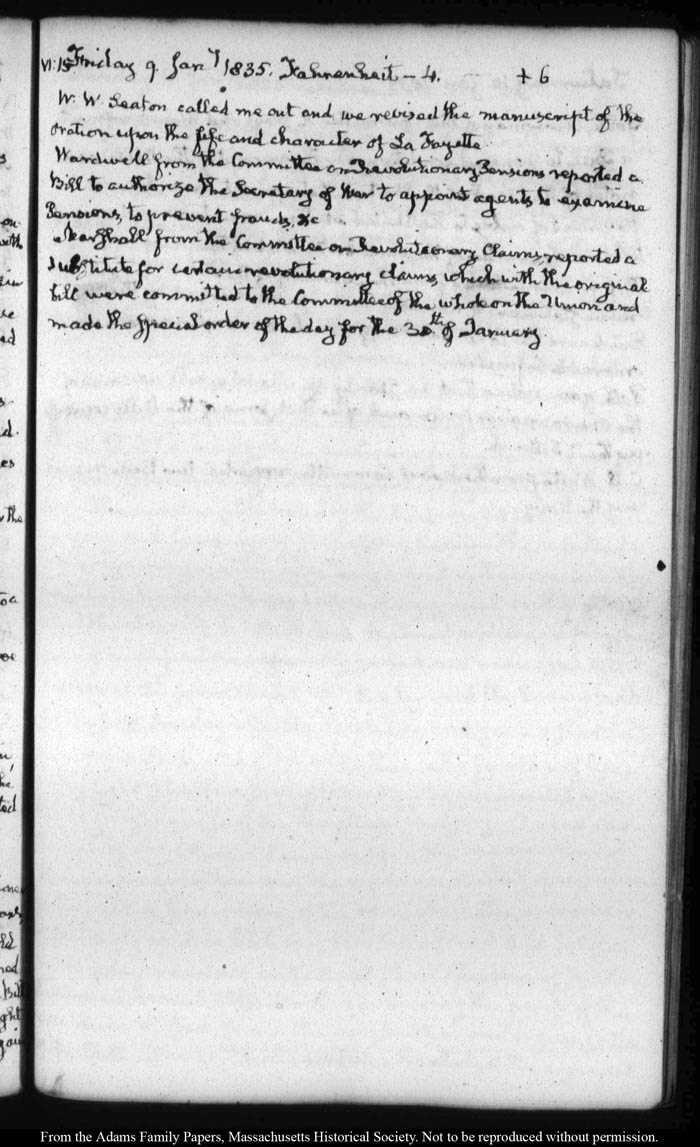 VI:15 Friday 9. Jany 1835. Fahrenheit - 4. + 6
W. W. Seaton called me out and we revised the manuscript of the
oration upon the life and character of La Fayette.
Wardwell from the Committee on Revolutionary Pensions reported a
Bill to authorize the Secretary of War to appoint agents to examine
Pensions, to prevent frauds, &c
Marshall from the Committee on Revolutionary Claims, reported a
substitute for certain revolutionary claims, which with the original
bill were committed to the Committee of the whole on the Union and
made the special order of the day for the 30th of January.
From the Adams Family Papers, Massachusetts Historical Society. Not to be reproduced without permission.